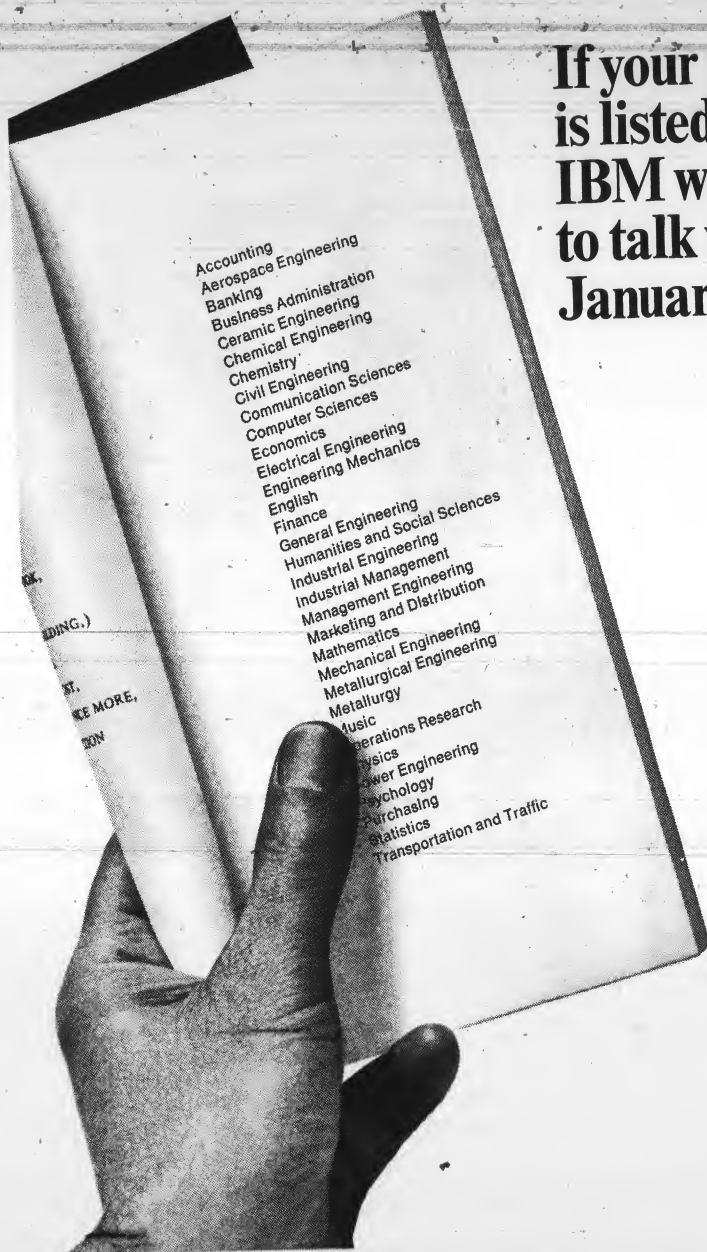 If your
is listed
IBM w
to talk
Januar
Accounting
Aerospace Engineering
Banking
Business Administration
Ceramic Engineering
Chemical Engineering
Chemistry
Civil Engineering
Communication Sciences
Computer Sciences
Economics
Electrical Engineering
Engineering Mechanics
English
Finance
General Engineering
Humanities and Social Sciences
Industrial Engineering
Industrial Management
Management Engineering
Marketing and Distribution
Mathematics
Mechanical Engineering
Metallurgical Engineering
Metallurgy
Music
perations Research
ysics
ower Engineering
sychology
Purchasing
Statistics
Transportation and Traffic
DING.)
CE MORE,